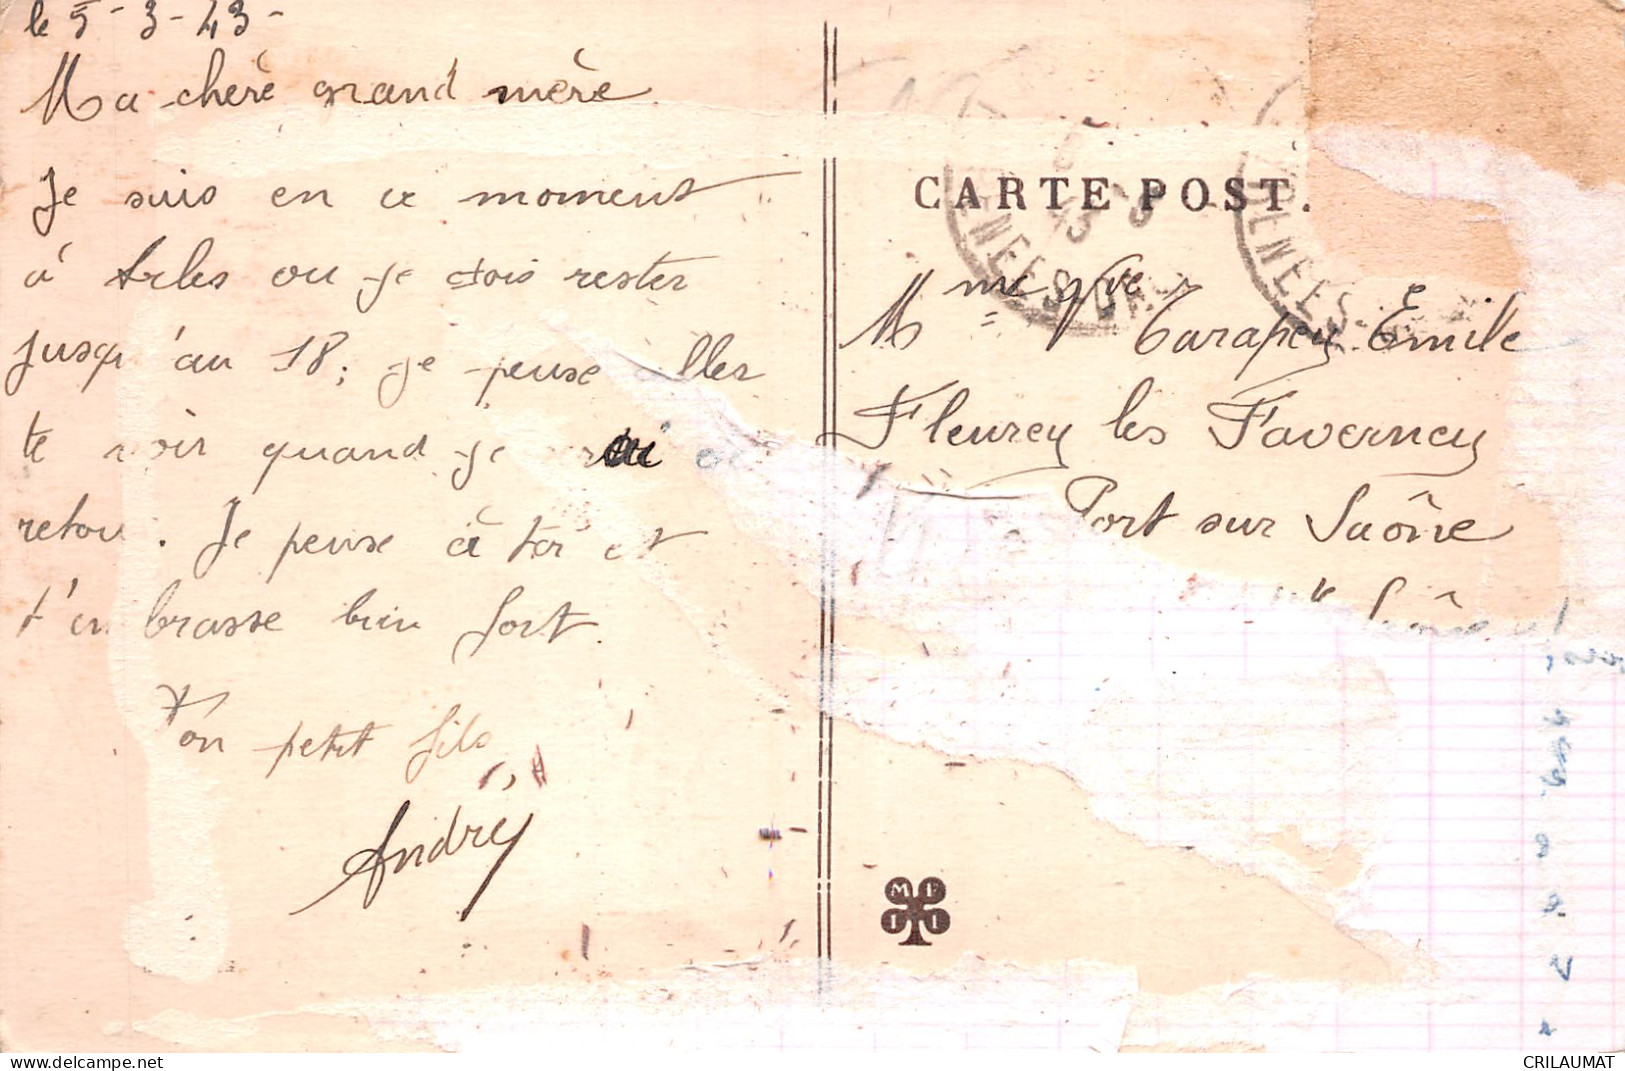 le 5-3-43-
Ma chère grand mère
Je suis en ce moment
à Arles ou je dois rester
jusqu'au 18; je pense aller
te voir quand je
retour. Je pense à toi et
t'embrasse bien fort.
Ton petit fils
André
CARTE POST.
Mme Vve Tarapey Emile
Fleurey les Faverney
Port sur Saône
Saône
M F I I
www.delcampe.net
CRILAUMAT